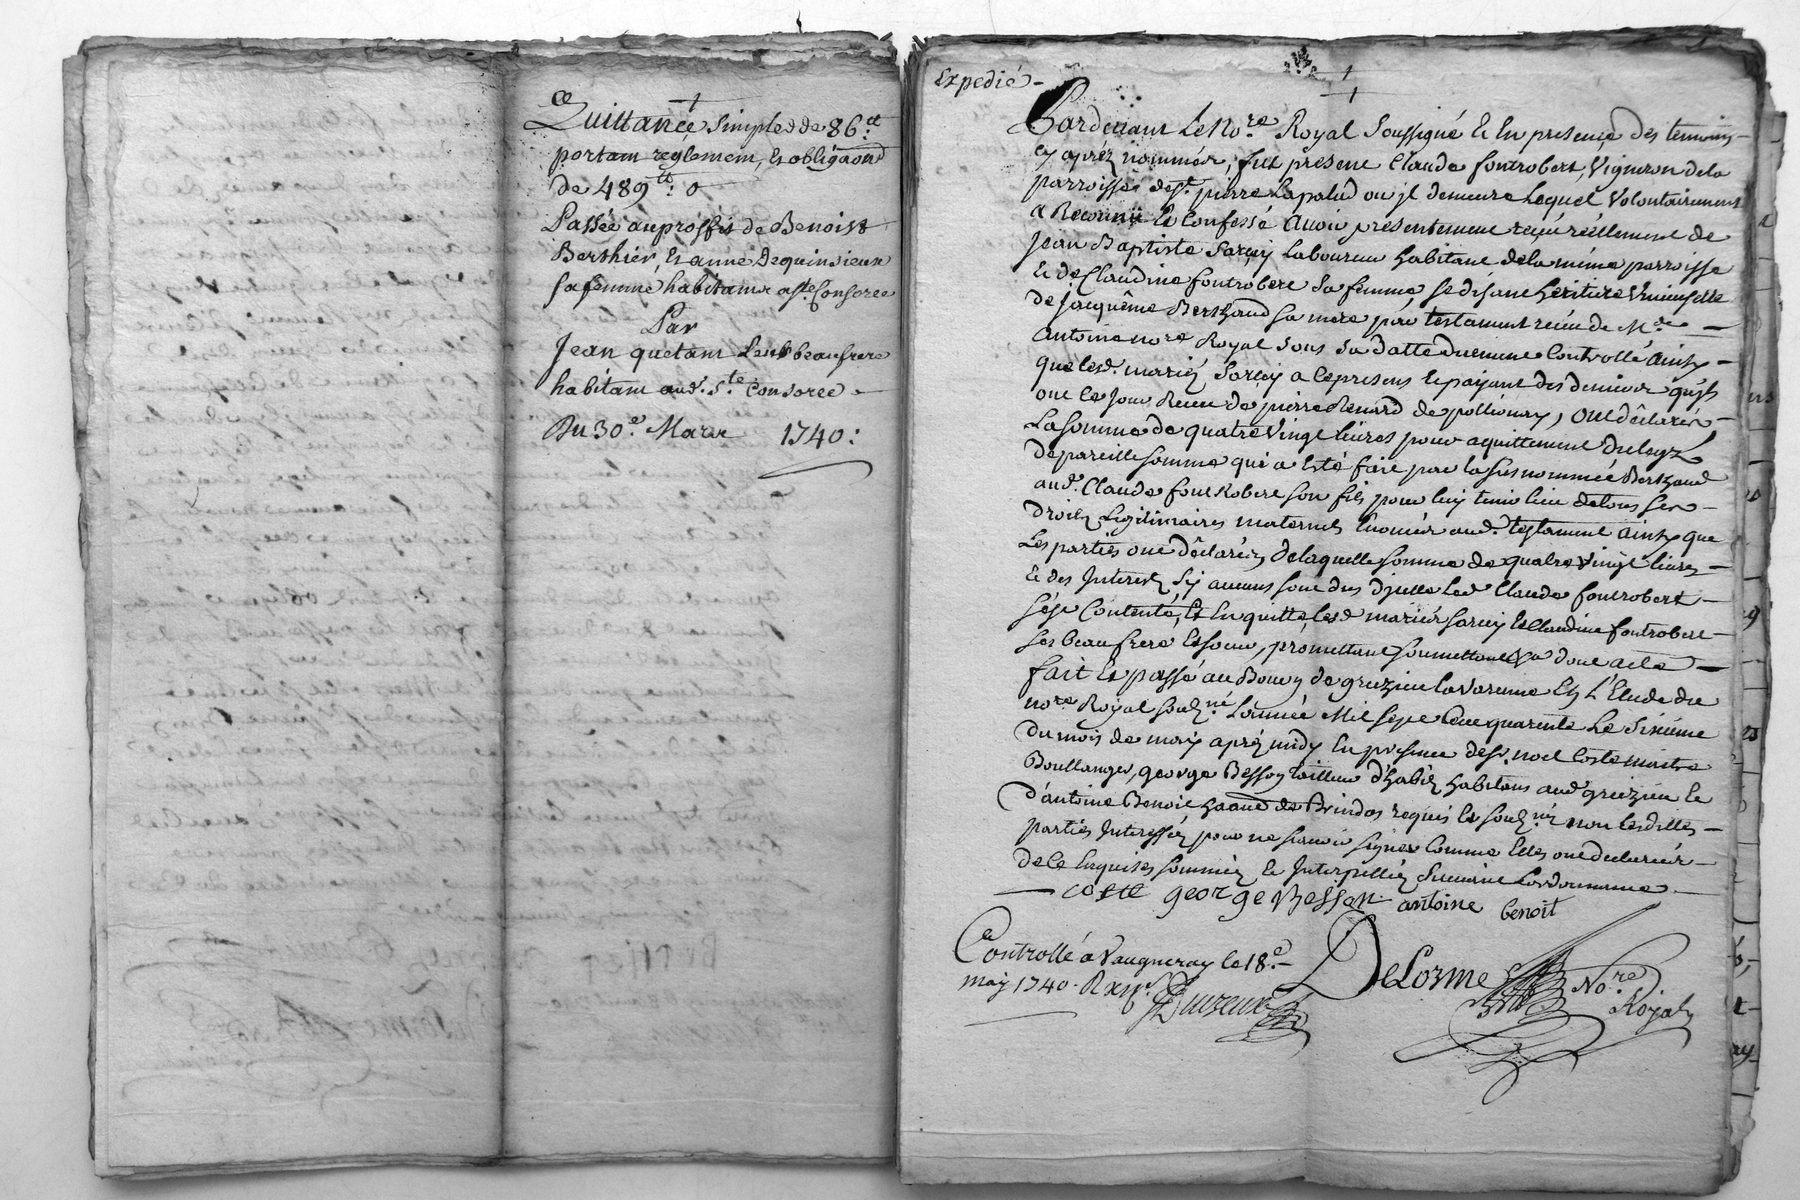 Quittance simple de 86 ₶
portant reglement, et obligaon
de 489 ₶: 0
Passée au proffit de Benoist
Berthier, et anne Dequinsieux
sa femme habitants a ste Consorce
Par
Jean quetant Leur beaufrere
habitant aud. Ste Consorce
Du 30e Mars 1740:
Expedié
Pardevant Le Nore Royal soussigné et En presence des temoins
cy aprés nommés, fut présent Claude fontrobert, Vigneron dela
parroisse de St. pierre Lapalud ou jl demeure Lequel Volontairement
a Reconnu et Confessé avoir présentement reçu réellement de
Jean Baptiste Sarcey Laboureur habitant dela même parroisse
et de Claudine fontrobert sa femme, se disant héritiere Universelle
de jacquême Berthaud sa mere par testament reçu de Me
antoine nore Royal sous sa datte duement Controllé ainsy
que lesd. mariés Sarcey a ce presens et payant des deniers qu'jls
ont ce jour Reçu de pierre Renard de pollionay, ont déclaré
La somme de quatre Vingt livres pour aquittement du legs
de pareille somme qui a Eté fait par la susnommée Berthaud
aud. Claude fontrobert son fils pour luy tenir lieu de tous ses
droits Légitimaires maternels Enoncés aud. testament ainsy que
Les parties ont déclaré, de laquelle somme de quatre Vingt livres
et des Interets sy aucuns sont dus d'jcelle Led Claude fontrobert
s'est Contenté, et En quitte lesd mariés Sarcey et Claudine fontrobert
ses beau frere et soeur, promettant soumettant &a dont acte
fait et passé au Bourg de grezieu lavarenne En L'Etude du
nore Royal soussigné L'année Mil sept Cent quarante Le sixième
du mois de may aprés midy En presence de sr. noel Coste maitre
Boullanger, george Besson tailleur d'habits habitans aud grezieu et
d'antoine Benoit de Brindas requis et soussignés non lesdittes
parties Interessées pour ne sçavoir signer Comme Elles ont déclaré
de ce Enquises sommées et Interpellées suivant L'ordonnance
coste george Besson antoine benoit
Controllé a Vaugneray le 18e
may 1740.
DeLorme Nore
Royal